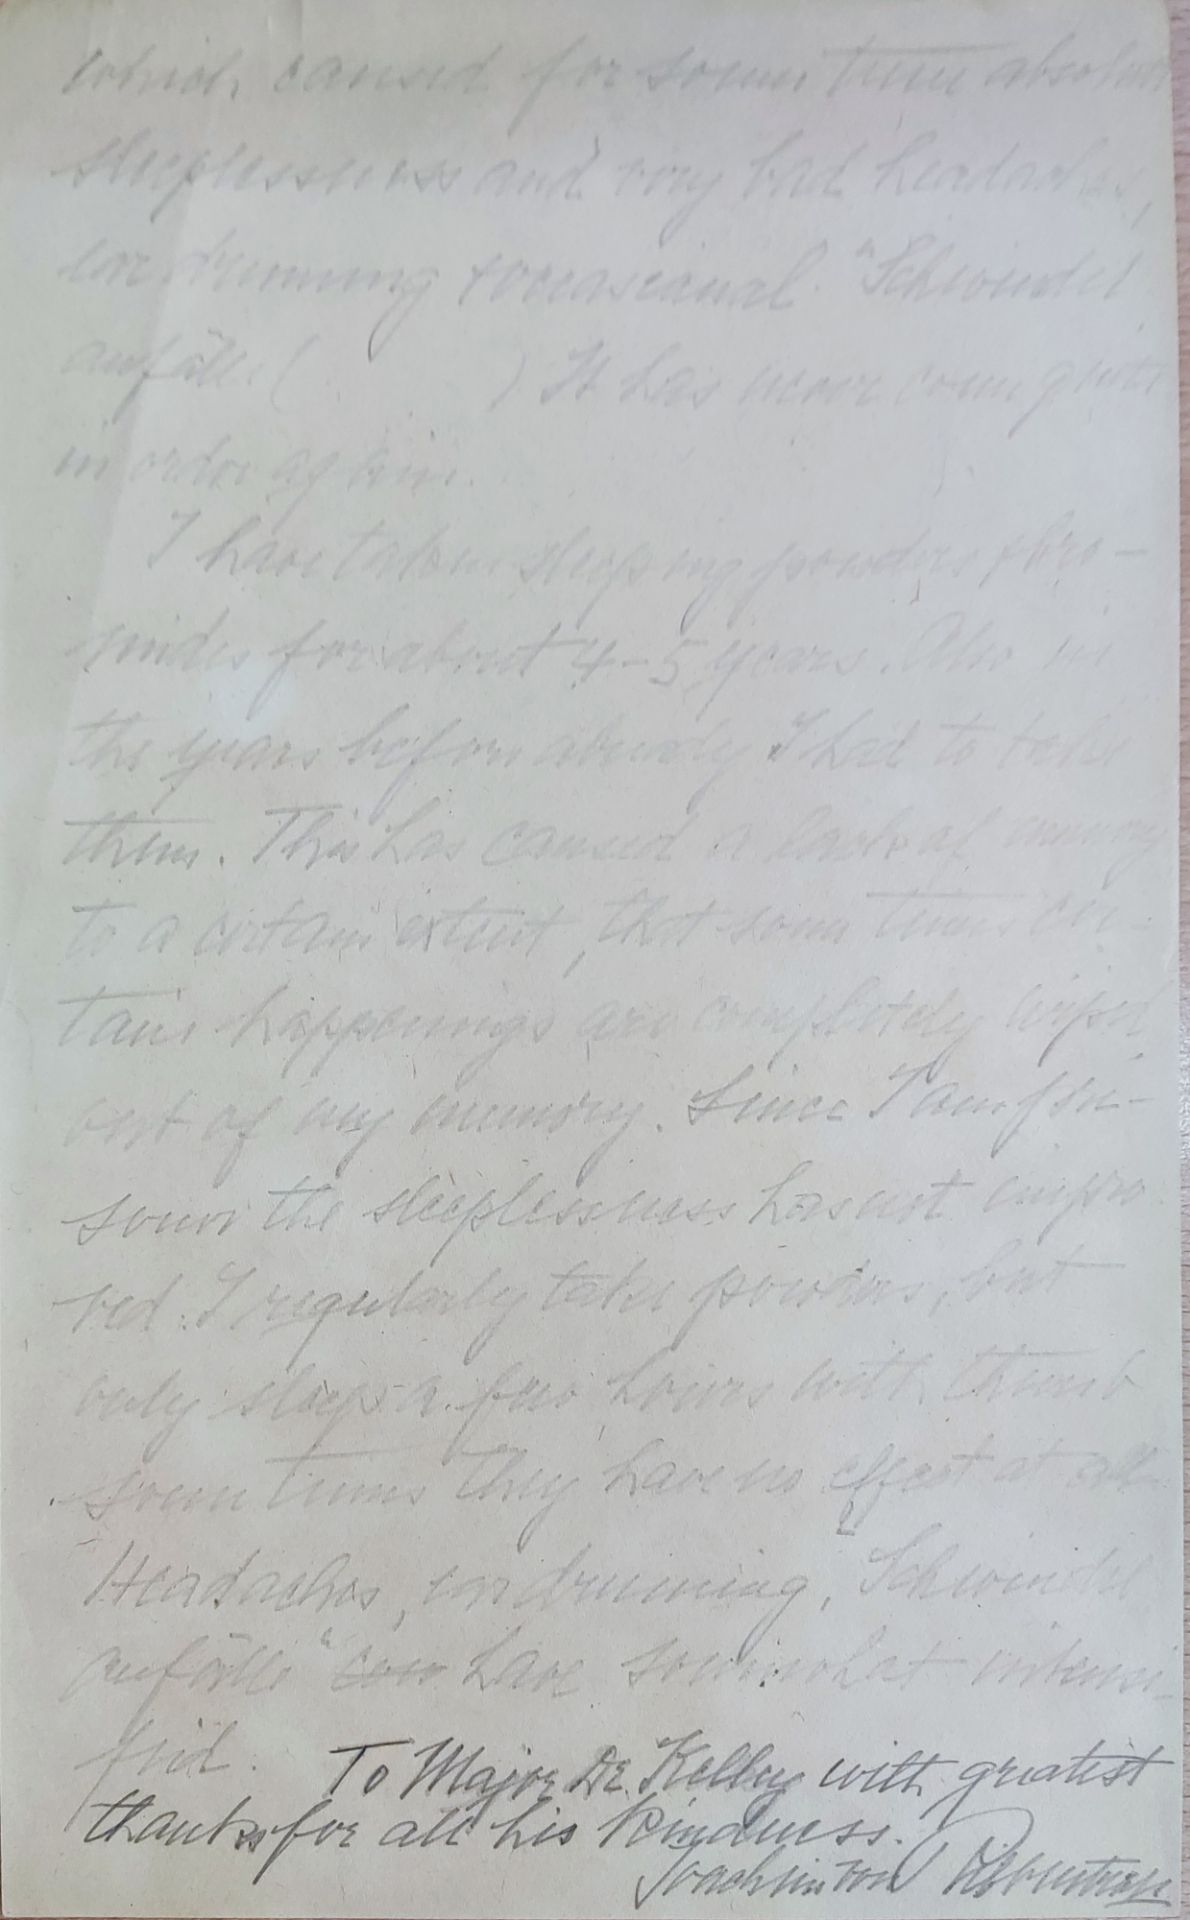 which caused for some time absolute
sleeplessness and very bad headaches,
ear drumming + occasional "Schwindel
anfälle ( ) It has never come quite
in order again.
I have taken sleeping powders + bro-
mides for about 4-5 years. Also in
the years before already I had to take
them. This has caused a lack of memory
to a certain extent, that some times cer-
tain happenings are completely wiped
out of my memory. Since I am pri-
soner the sleeplessness has not impro
ved. I regularly take powders, but
only sleep a few hours with them
some times they have no effect at all
Headaches, ear drumming, "Schwindel
anfälle" have somewhat intensi-
fied. To Major Dr. Kelley with greatest
thanks for all his kindness.
Joachim von Ribbentrop